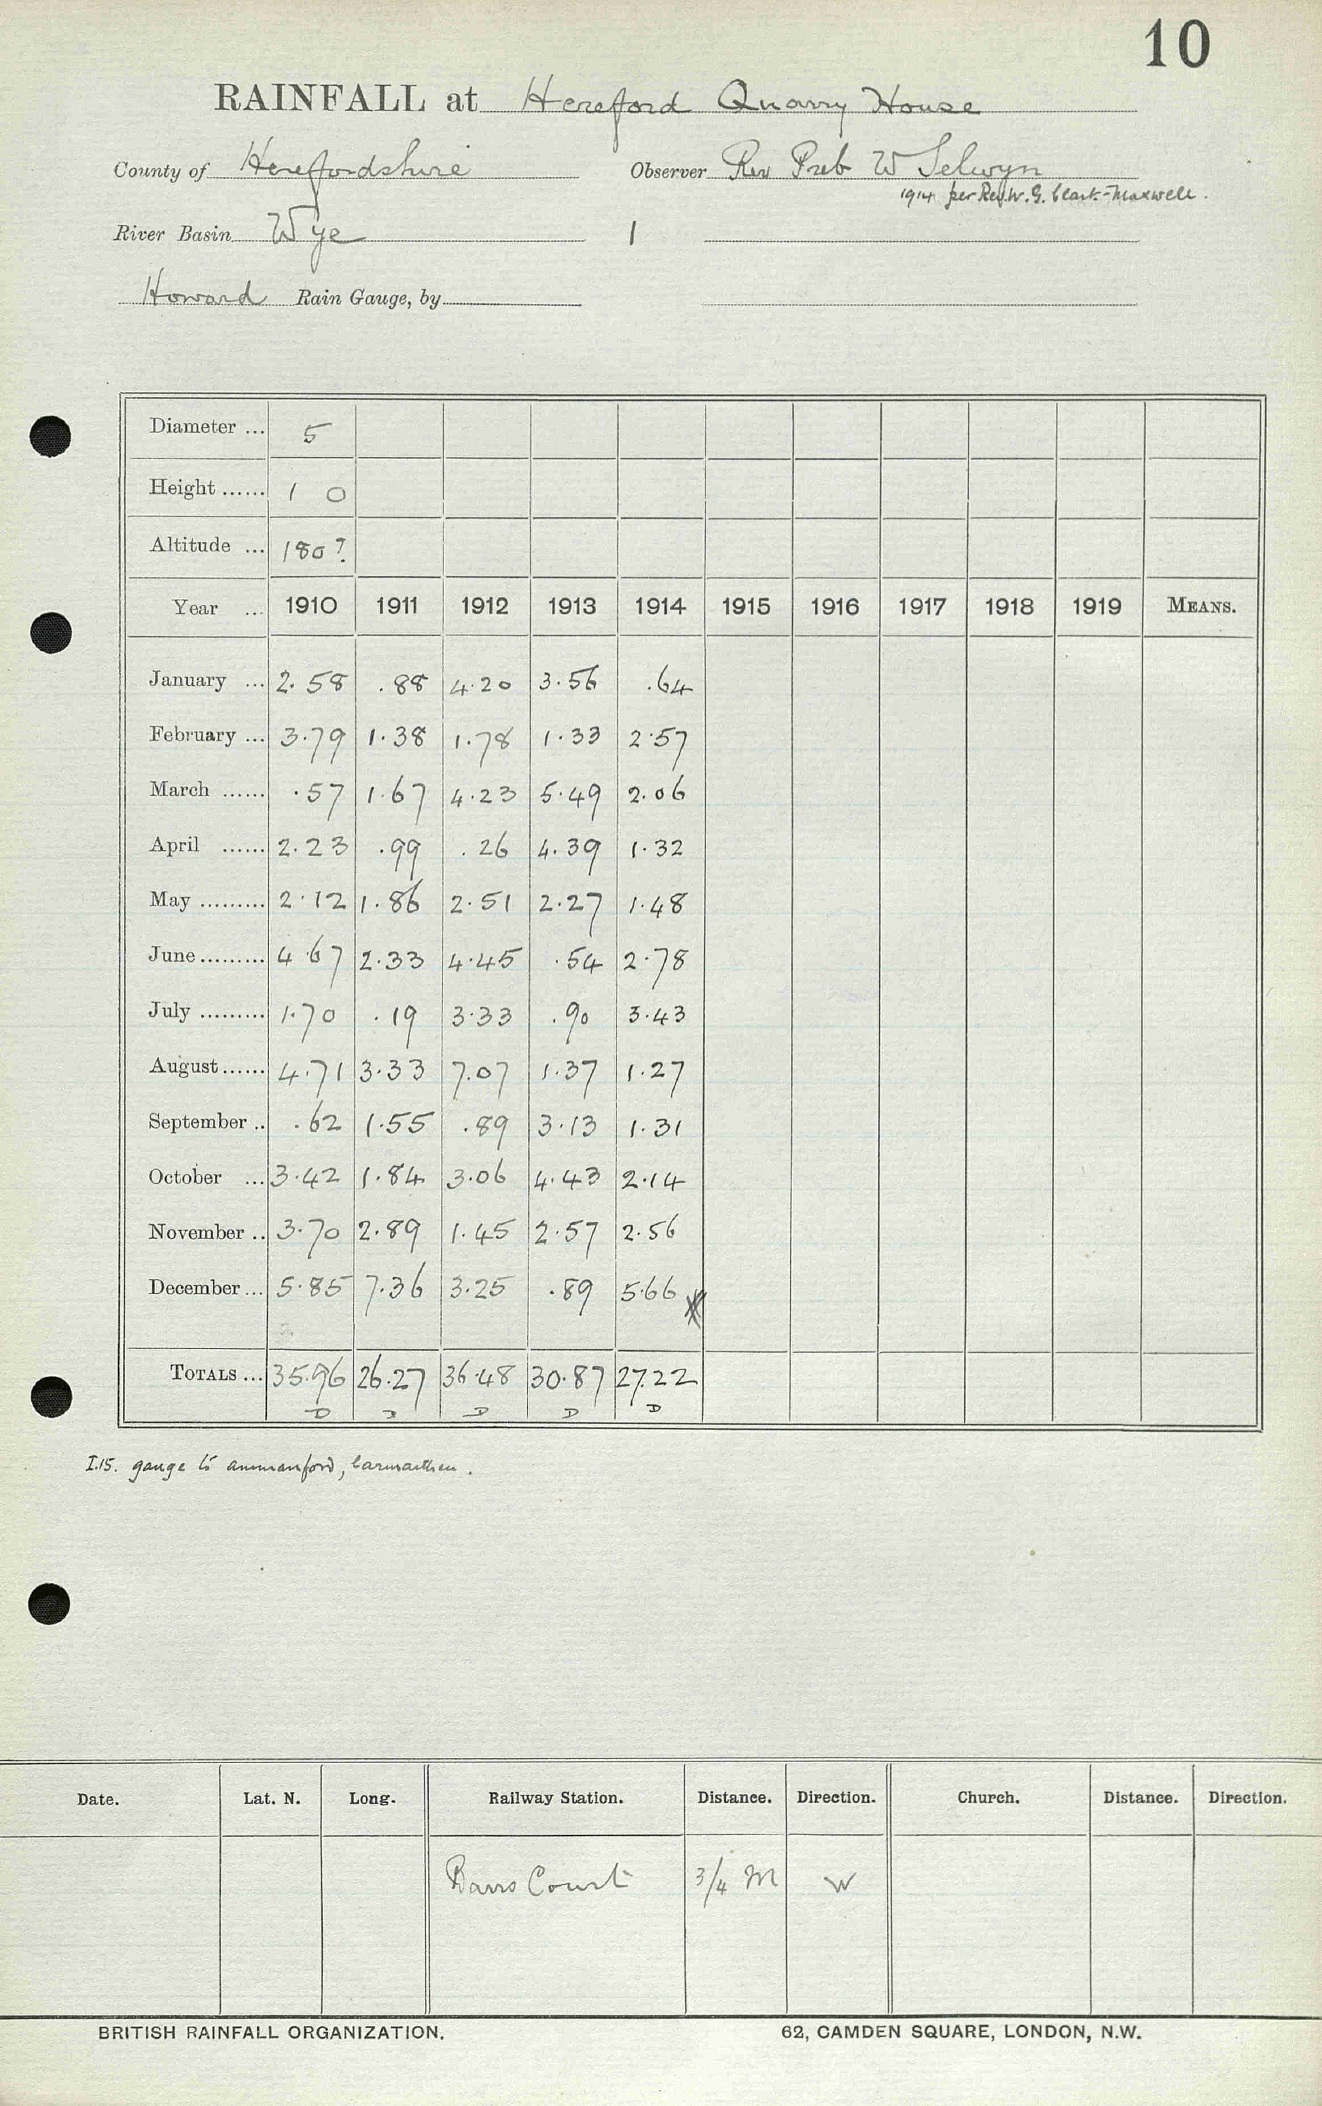 10
RAINFALL at Hereford Quarry House
County of Herefordshire Observer Rev Preb W Selwyn
1914 per Rev. W. G. Clark-Maxwell.
River Basin Wye 1
Howard Rain Gauge, by
Diameter ... 5
Height ...... 1 0
Altitude ... 180?
Year ... 1910 1911 1912 1913 1914 1915 1916 1917 1918 1919 MEANS.
January ... 2.58 .88 4.20 3.56 .64
February ... 3.79 1.38 1.78 1.33 2.57
March ...... .57 1.67 4.23 5.49 2.06
April ...... 2.23 .99 .26 4.39 1.32
May ......... 2.12 1.86 2.51 2.27 1.48
June ......... 4.67 2.33 4.45 .54 2.78
July ......... 1.70 .19 3.33 .90 3.43
August ...... 4.71 3.33 7.07 1.37 1.27
September .. .62 1.55 .89 3.13 1.31
October ... 3.42 1.84 3.06 4.43 2.14
November .. 3.70 2.89 1.45 2.57 2.56
December ... 5.85 7.36 3.25 .89 5.66
TOTALS ... 35.96 26.27 36.48 30.87 27.22
D D D D D
I.15. gauge to Ammanford, Carmarthen.
Date. Lat. N. Long. Railway Station. Distance. Direction. Church. Distance. Direction.
Barrs Court 3/4 M W
BRITISH RAINFALL ORGANIZATION. 62, CAMDEN SQUARE, LONDON, N.W.